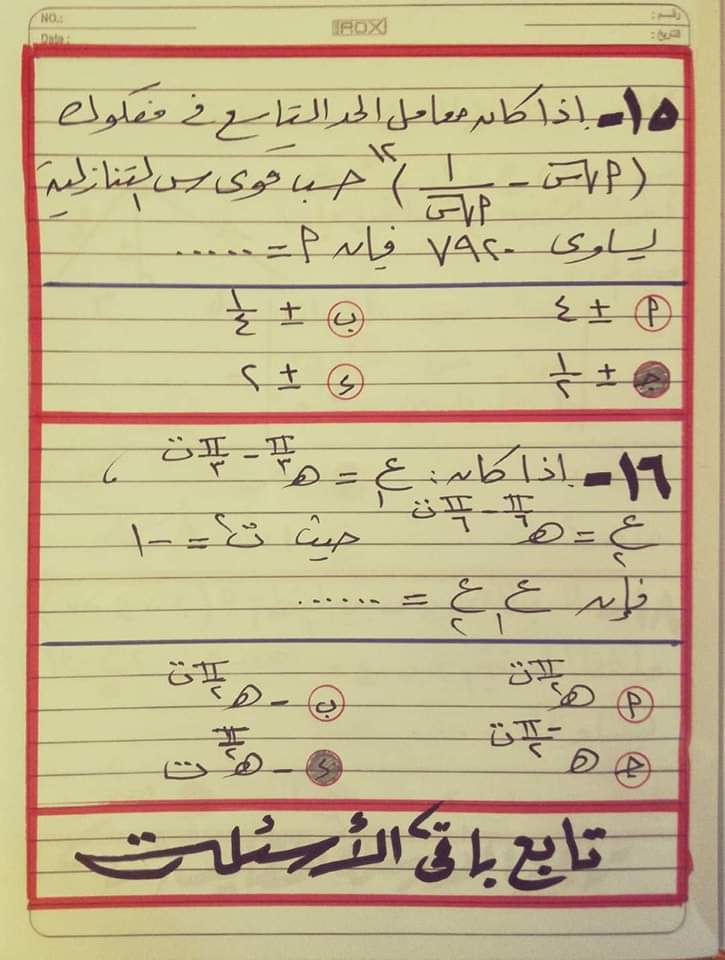 NO.:
Date :
ROX
رقم :
التاريخ :
١٥- إذا كان معامل الحد التاسع في مفكوك
(٩√س - ١/٩√س)^١٢ حسب قوى س التنازلية
يساوى ٧٩٢٠ فإن ٩ = ......
٩ ± ٤
ب ± ١/٤
ج ± ١/٢
د ± ٢
١٦- إذا كان : ع١ = هـ^(π/٣ - π/٣ ت) ،
ع٢ = هـ^(π/٦ - π/٦ ت) حيث ت٢ = -١
فإن ع١ ع٢ = ......
٩ هـ^(π/٢ ت)
ب - هـ^(π/٢ ت)
ج هـ^(-π/٢ ت)
د - هـ^(π/٢) ت
تابع باقى الأسئلة